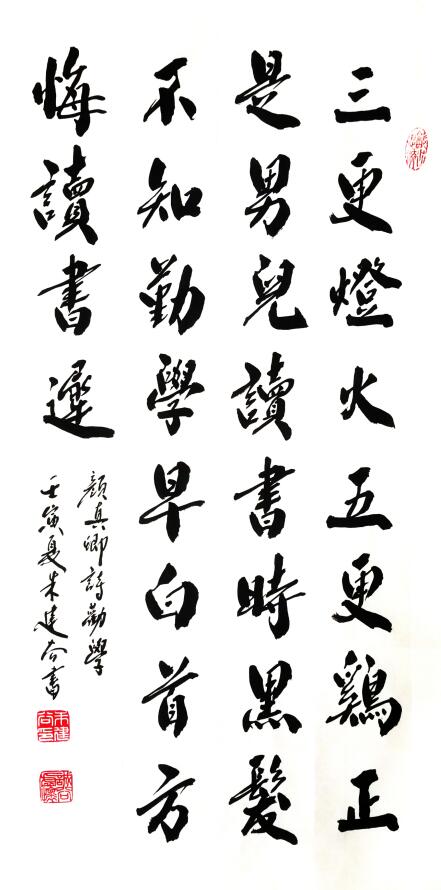 三更燈火五更鷄正
是男兒讀書時黑髮
不知勤學早白首方
悔讀書遲
顏真卿詩勸學
壬寅夏朱建書